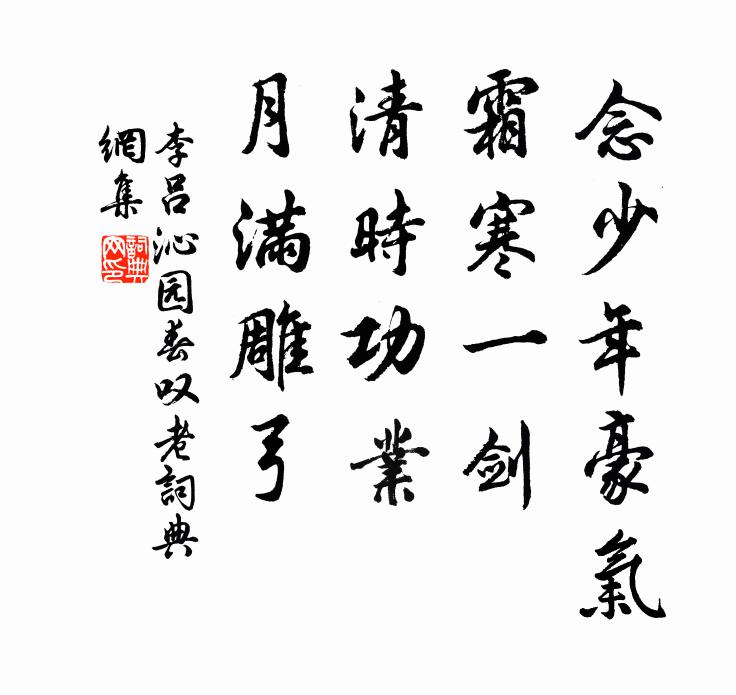 念少年豪氣
霜寒一剑
清時功業
月滿雕弓
李吕沁园春叹老詞典
網集
詞典
网印